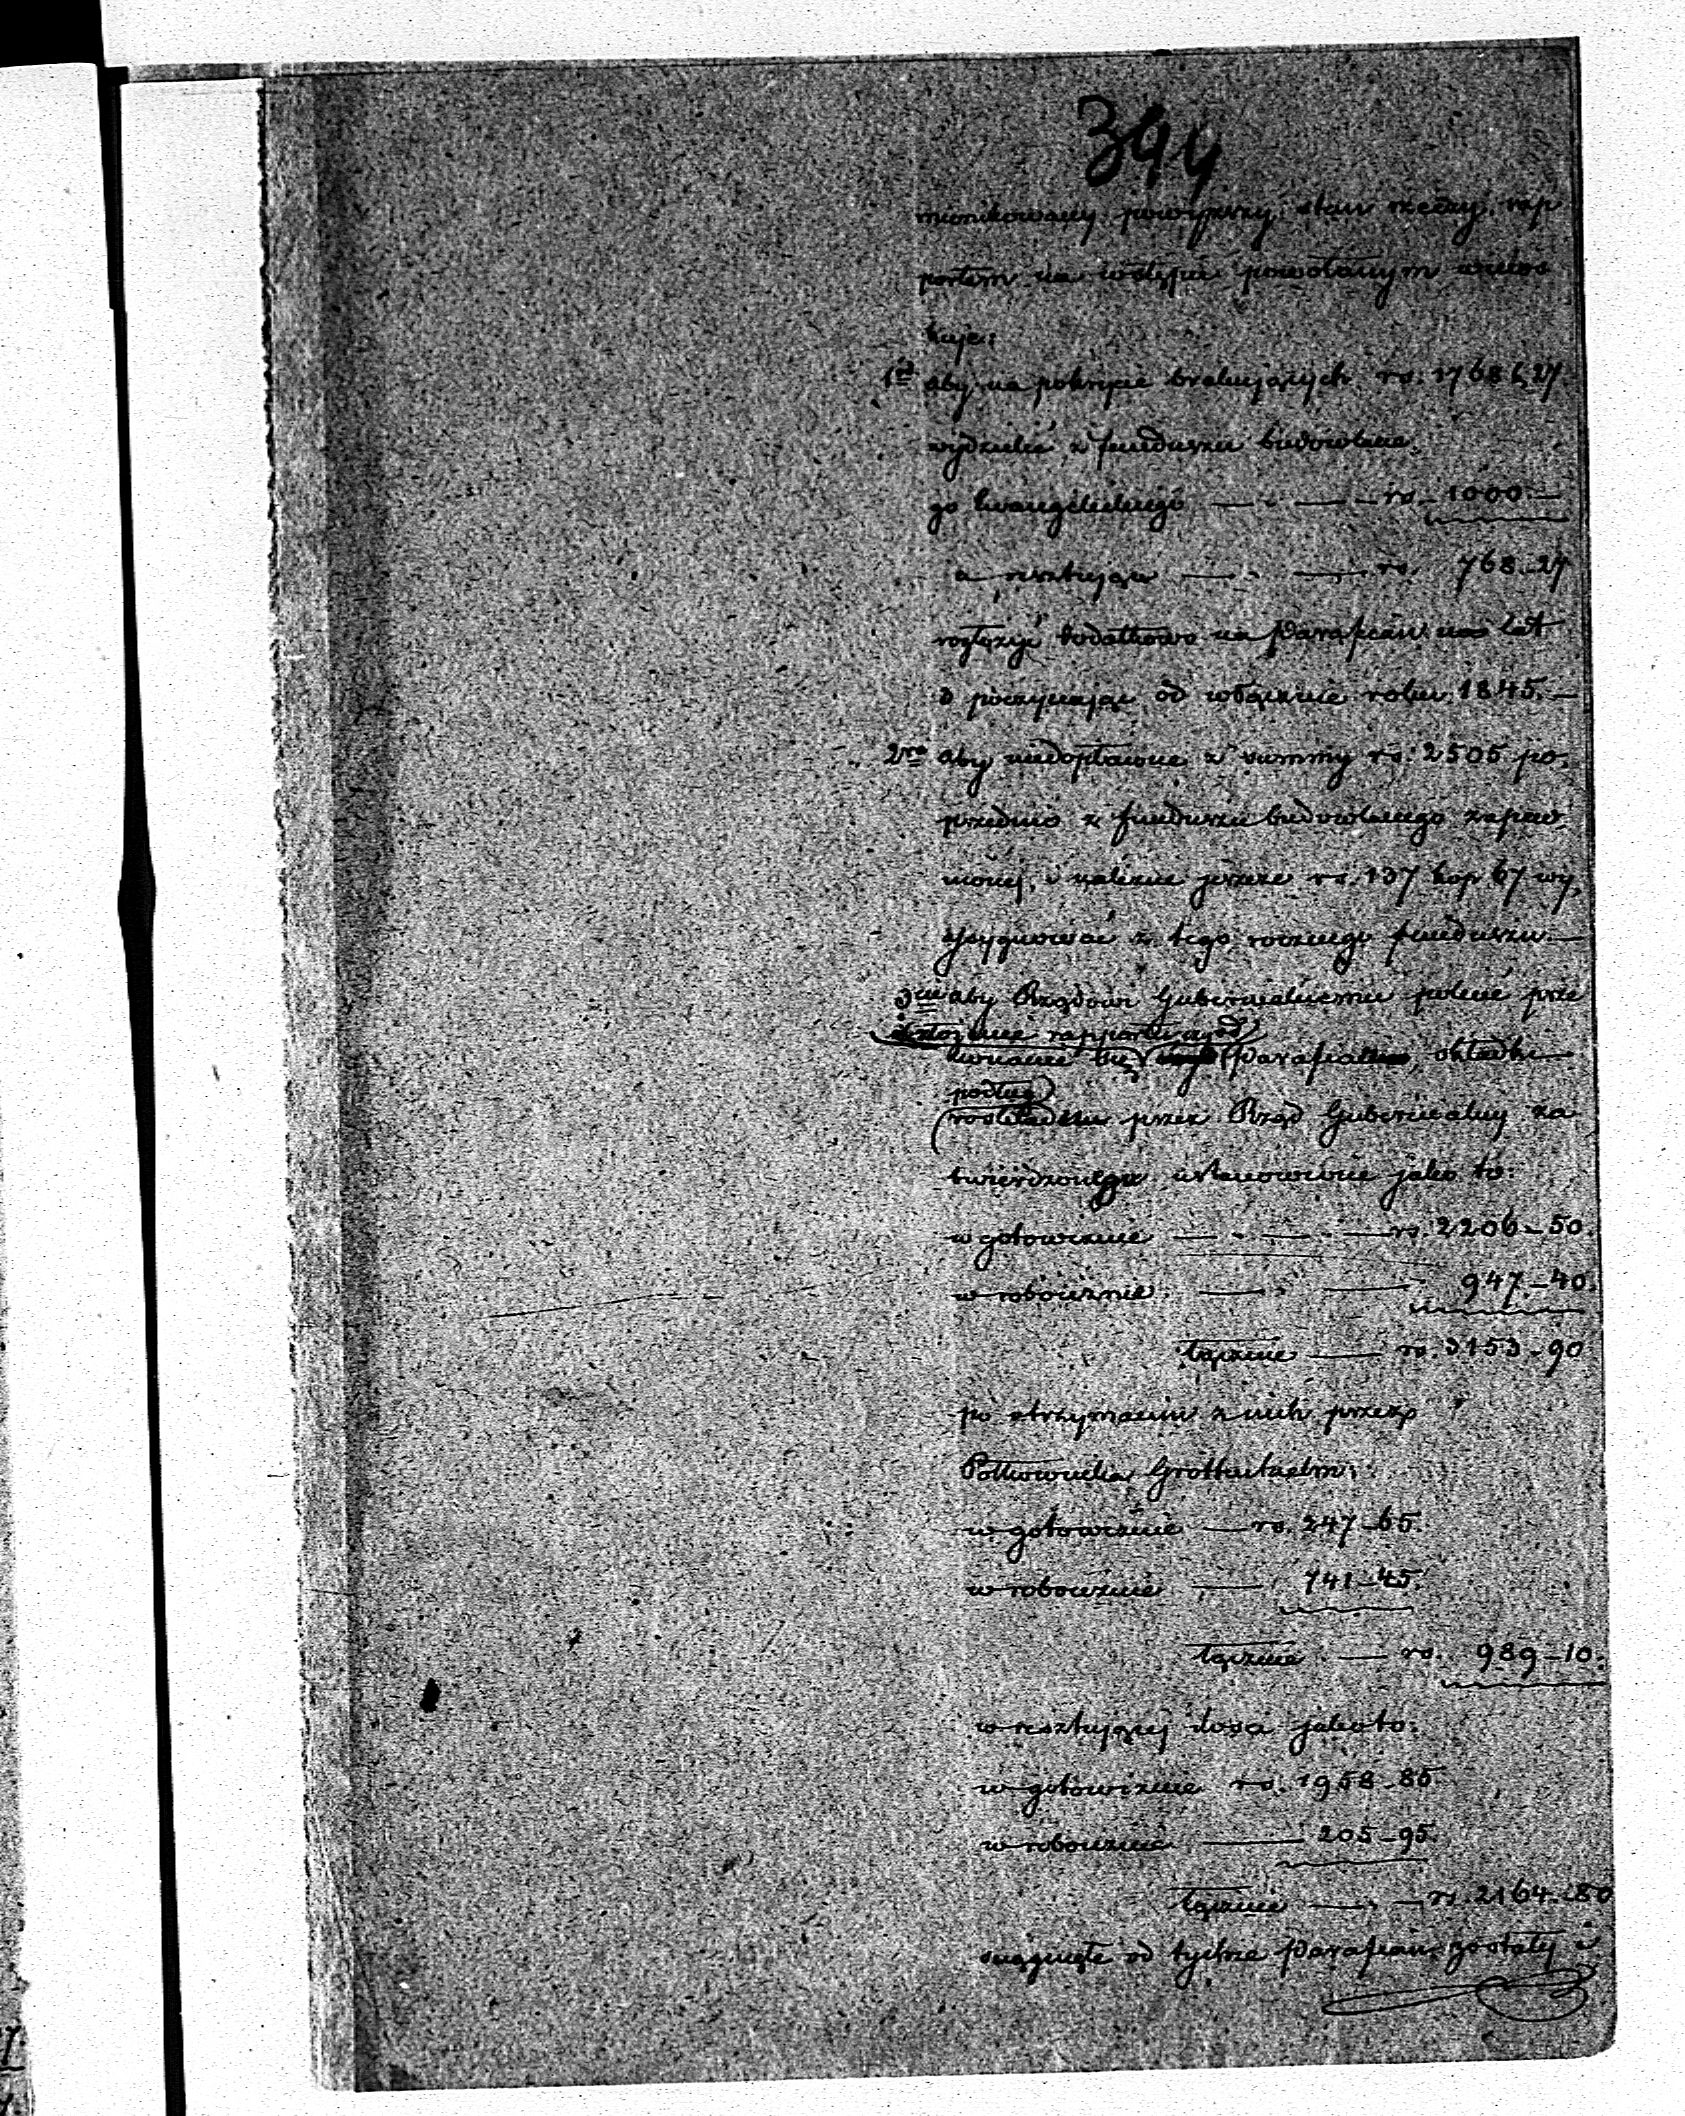 344
munikowany powyższy stan rzeczy, rap
portem na wstępie powołanym wnios
kuje:
1ód aby na pokrycie brakujących rs. 1768 k 27.
wydzielić z funduszu budowlane
go Ewangelickiego — " — rs. 1000 —
a resztujące — " — rs. 768 - 27
rozłożyć dodatkowo na Parafian na lat
3 poczynając od włącznie roku 1845. —
2re aby niedopłacone z summy rs. 2505 po,
przednio z funduszu budowlanego zapew,
nionej, i należne jeszcze rs. 137 kop 67 wy,
assygnować z tego rocznego funduszu. —
3cie aby Rządowi Gubernialnemu polecić prze
i złożenie rapportu czyli
konanie się Parafialne, składki
podług
rozkładu przez Rząd Gubernialny za
twierdzonego ustanowione jako to:
w gotowiznie — " — " — rs. 2206 - 50.
w robociznie — " — 947 - 40.
łącznie — rs. 3153 - 90
po otrzymaniu z nich przez
Pułkownika Grotthelm:
w gotowiznie — rs. 247 - 65.
w robociznie — 741 - 45.
łącznie — rs. 989 - 10.
w resztującej ilości jako to:
w gotowiznie rs. 1958 - 85
w robociznie — 205 - 95.
łącznie — " — rs. 2164 - 80
ściągnięte od tychże Parafian zostały i